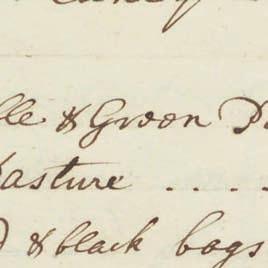 lle & Green D
asture . . . .
d & black bags